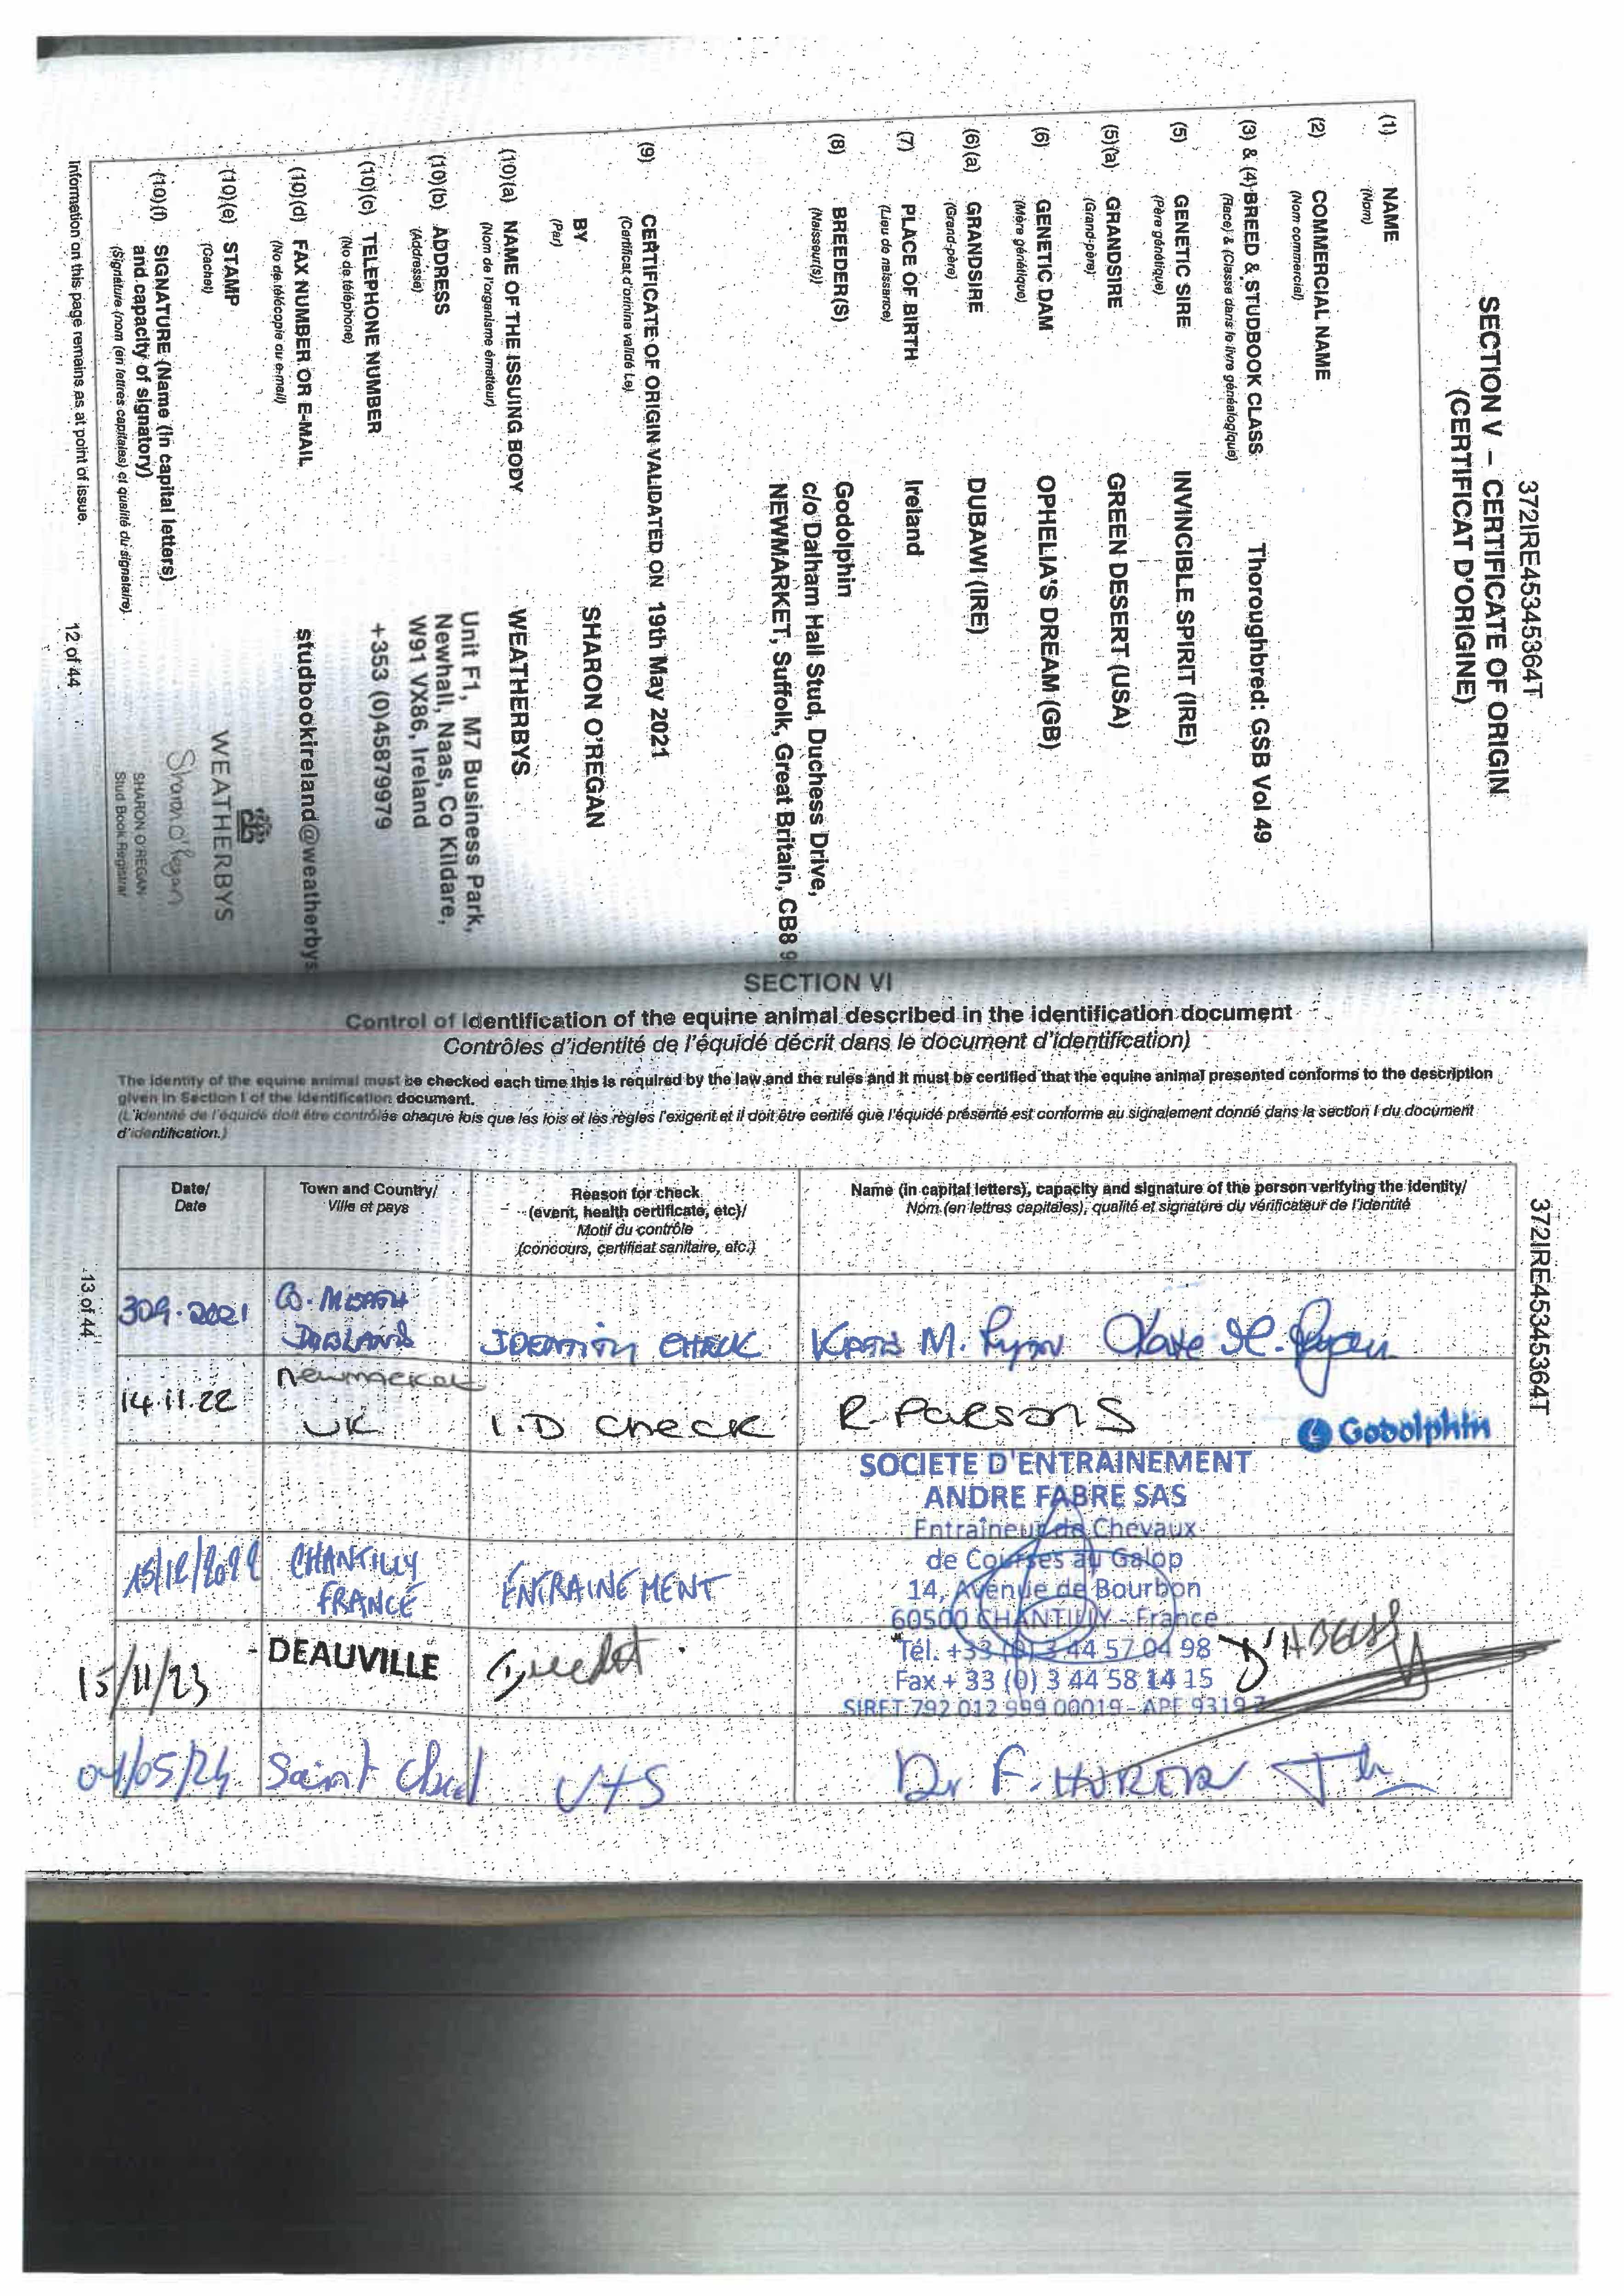 372IRE45345364T
SECTION V – CERTIFICATE OF ORIGIN
(CERTIFICAT D'ORIGINE)
(1) NAME
(Nom)
(2) COMMERCIAL NAME
(Nom commercial)
(3) & (4) BREED & STUDBOOK CLASS Thoroughbred: GSB Vol 49
(Race) & (Classe dans le livre généalogique)
(5) GENETIC SIRE INVINCIBLE SPIRIT (IRE)
(Père génétique)
(5)(a) GRANDSIRE GREEN DESERT (USA)
(Grand-père)
(6) GENETIC DAM OPHELIA'S DREAM (GB)
(Mère génétique)
(6)(a) GRANDSIRE DUBAWI (IRE)
(Grand-père)
(7) PLACE OF BIRTH Ireland
(Lieu de naissance)
(8) BREEDER(S) Godolphin
(Naisseur(s)) c/o Dalham Hall Stud, Duchess Drive,
NEWMARKET, Suffolk, Great Britain, CB8 9
(9) CERTIFICATE OF ORIGIN VALIDATED ON 19th May 2021
(Certificat d'orinine validé Le)
BY SHARON O'REGAN
(Par)
(10)(a) NAME OF THE ISSUING BODY WEATHERBYS
(Nom de l'organisme émetteur)
(10)(b) ADDRESS Unit F1, M7 Business Park,
(Addresse) Newhall, Naas, Co Kildare,
W91 VX86, Ireland
(10)(c) TELEPHONE NUMBER +353 (0)45879979
(No de téléphone)
(10)(d) FAX NUMBER OR E-MAIL studbookireland@weatherbys
(No de télécopie ou e-mail)
(10)(e) STAMP WEATHERBYS
(Cachet)
(10)(f) SIGNATURE (Name (in capital letters) Sharon O'Regan
and capacity of signatory) SHARON O'REGAN
(Signature (nom (en lettres capitales) et qualité du signataire) Stud Book Registrar
Information on this page remains as at point of issue.
12 of 44
SECTION VI
Control of identification of the equine animal described in the identification document
Contrôles d'identité de l'équidé décrit dans le document d'identification)
The identity of the equine animal must be checked each time this is required by the law and the rules and it must be certified that the equine animal presented conforms to the description
given in Section I of the Identification document.
(L'identité de l'équidé doit être contrôlés chaque fois que les lois et les règles l'exigent et il doit être certifé que l'équidé présenté est conforme au signalement donné dans la section I du document
d'identification.)
Date/ Town and Country/ Reason for check Name (in capital letters), capacity and signature of the person verifying the identity/
Date Ville et pays (event, health certificate, etc)/ Nom (en lettres capitales), qualité et signature du vérificateur de l'identité
Motif du contrôle
(concours, certificat sanitaire, etc.)
309.2021 CO. MEATH
IRELAND IDENTITY CHECK M. Ryan
14.11.22 Newmarket
UK I.D Check R. Parsons Godolphin
SOCIETE D'ENTRAINEMENT
ANDRE FABRE SAS
Entraîneur de Chevaux
de Courses au Galop
15/12/2022 CHANTILLY ENTRAINEMENT 14, Avenue de Bourbon
FRANCE 60500 CHANTILLY - France
15/11/23 DEAUVILLE Tél. +33 (0) 3 44 57 04 98
Fax + 33 (0) 3 44 58 14 15
SIRET 792 012 999 00019 - APE 9319
04/05/24 Saint Cloud Dr F.
13 of 44
372IRE45345364T